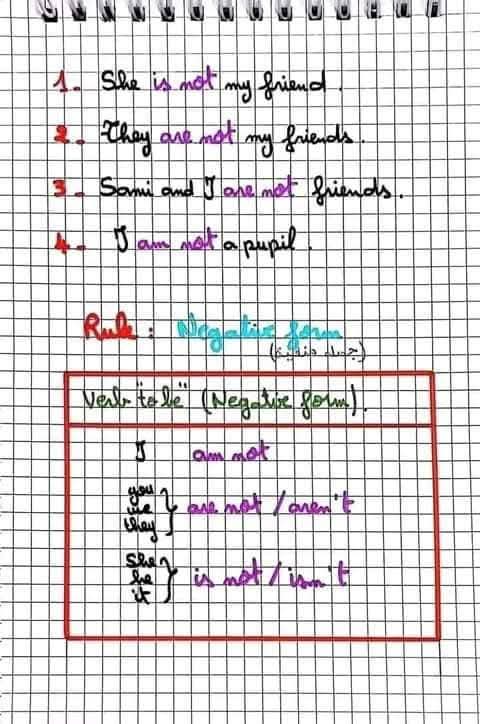 1. She is not my friend.
2. They are not my friends.
3. Sami and I are not friends.
4. I am not a pupil.
Rule: Negative form
(جملة منفية)
Verb "to be" (Negative form).
I am not
you
we
they
} are not / aren't
she
he
it
} is not / isn't